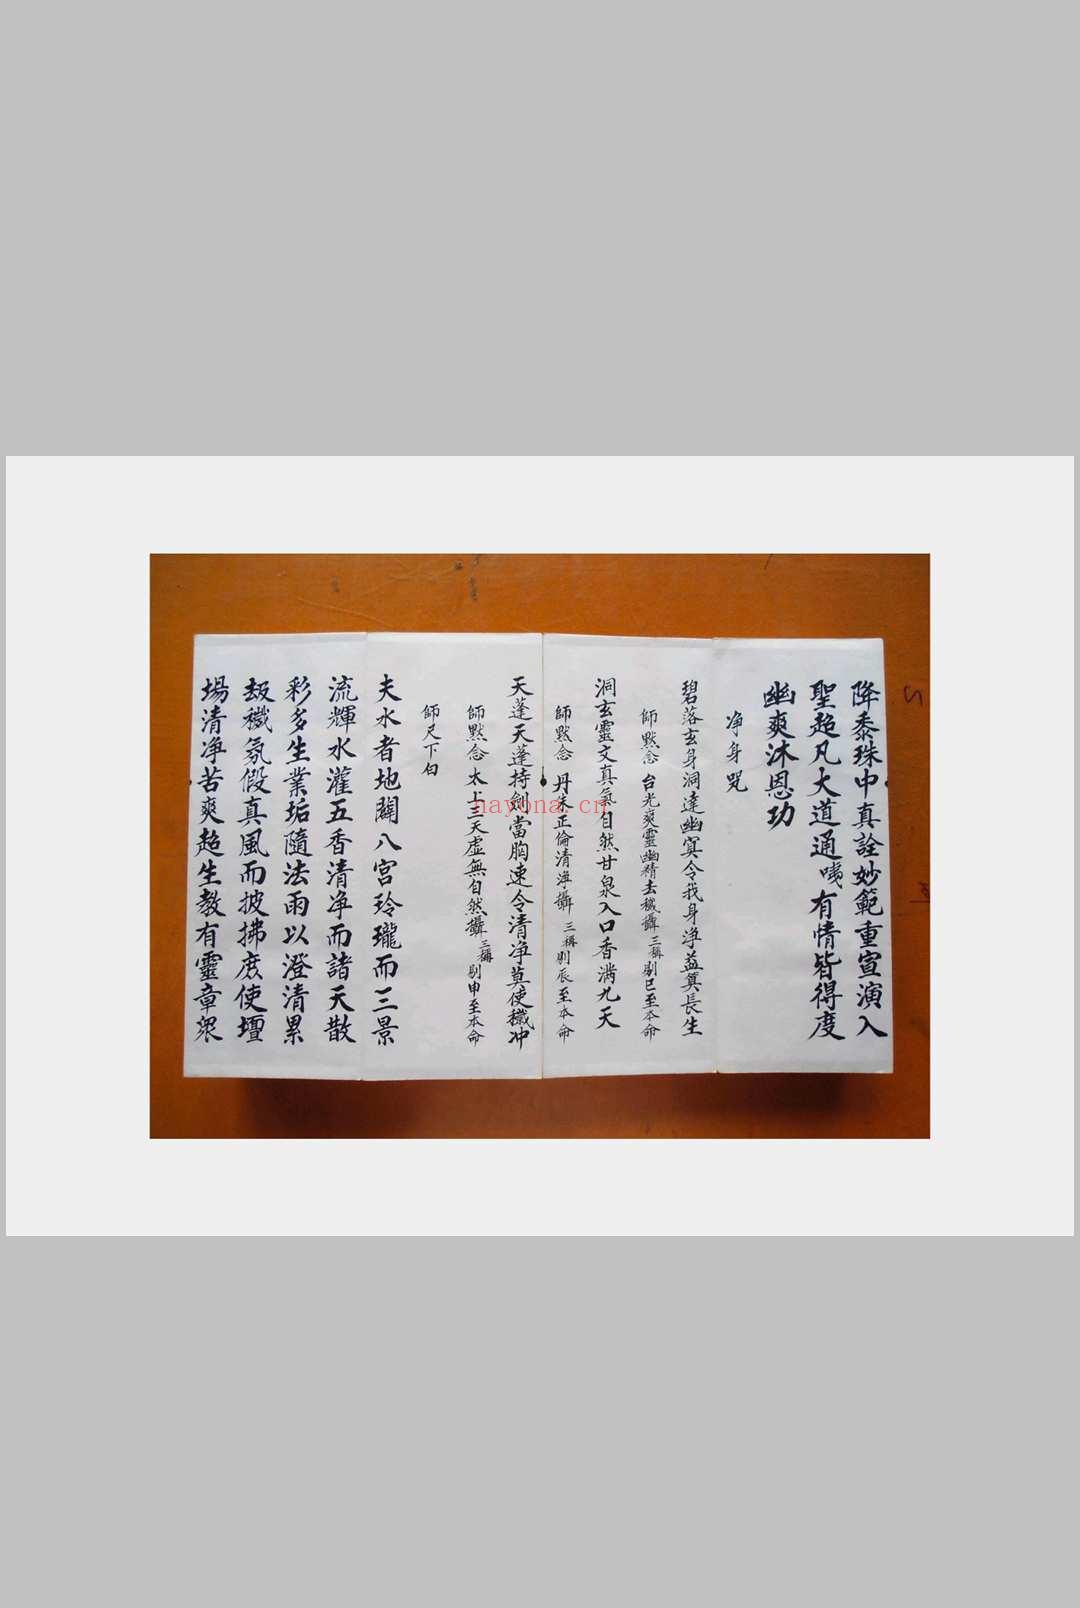 降黍珠中真詮妙範重宣演入
聖超凡大道通咦有情皆得度
幽爽沐恩功
净身咒
碧落玄身洞達幽寞令我身净益算長生
師默念台光爽靈幽精去穢攝三稱剔已至本命
洞玄靈文真氣自然甘泉入口香滿九天
師默念丹朱正倫清净攝三稱剔辰至本命
天蓬天蓬持劍當胸速令清净莫使穢冲
師默念太上三天虛無自然攝三稱剔申至本命
師尺下白
夫水者地闢八宮玲瓏而三景
流輝水灌五香清净而諸天散
彩多生業垢隨法雨以澄清累
劫穢氛假真風而披拂庶使壇
場清净苦爽超生教有靈章眾
nayona.cn